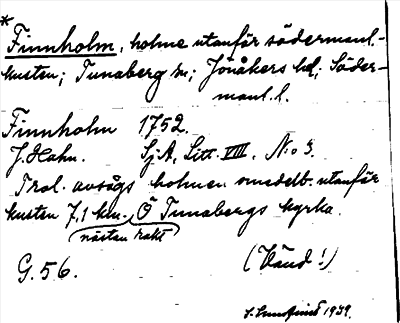 *
Finnholm, holme utanför södermanl.-
kusten; Tunaberg sn; Jönåkers hd; Söder-
manl. l.
Finnholm 1752.
J. Hahn. SjA, Litt. VIII. No 3.
Trol. avsågs holmen omedelb. utanför
kusten 7,1 km. Ö Tunabergs kyrka.
nästan rakt
G. 56. (Vänd!)
1939.